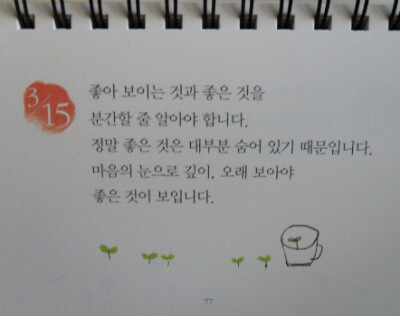 3/15
좋아 보이는 것과 좋은 것을
분간할 줄 알아야 합니다.
정말 좋은 것은 대부분 숨어 있기 때문입니다.
마음의 눈으로 깊이, 오래 보아야
좋은 것이 보입니다.
77